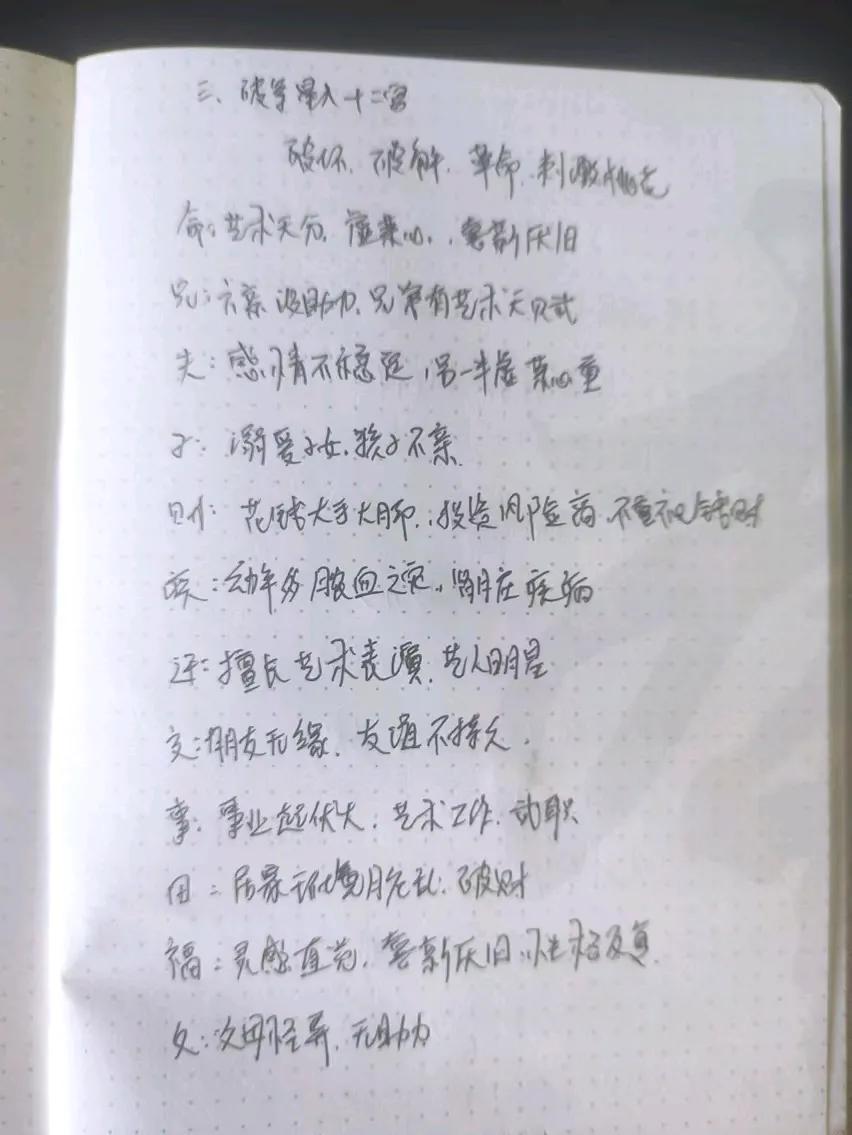 三、破军星入十二宫
破坏、破解、革命、刺激
命：艺术天分，虚荣心，喜新厌旧
兄：六亲没助力，兄弟有艺术天赋
夫：感情不稳定，另一半虚荣心重
子：溺爱子女，孩子不亲
财：花钱大手大脚，投资风险高，不重视钱财
疾：幼年多脓血之灾，肾脏疾病
迁：擅长艺术表演，艺人明星
交：朋友无缘，友谊不持久。
事：事业起伏大，艺术工作，武职
田：居家环境脏乱，破财
福：灵感直觉，喜新厌旧，性格反复
父：父母怪异，无助力